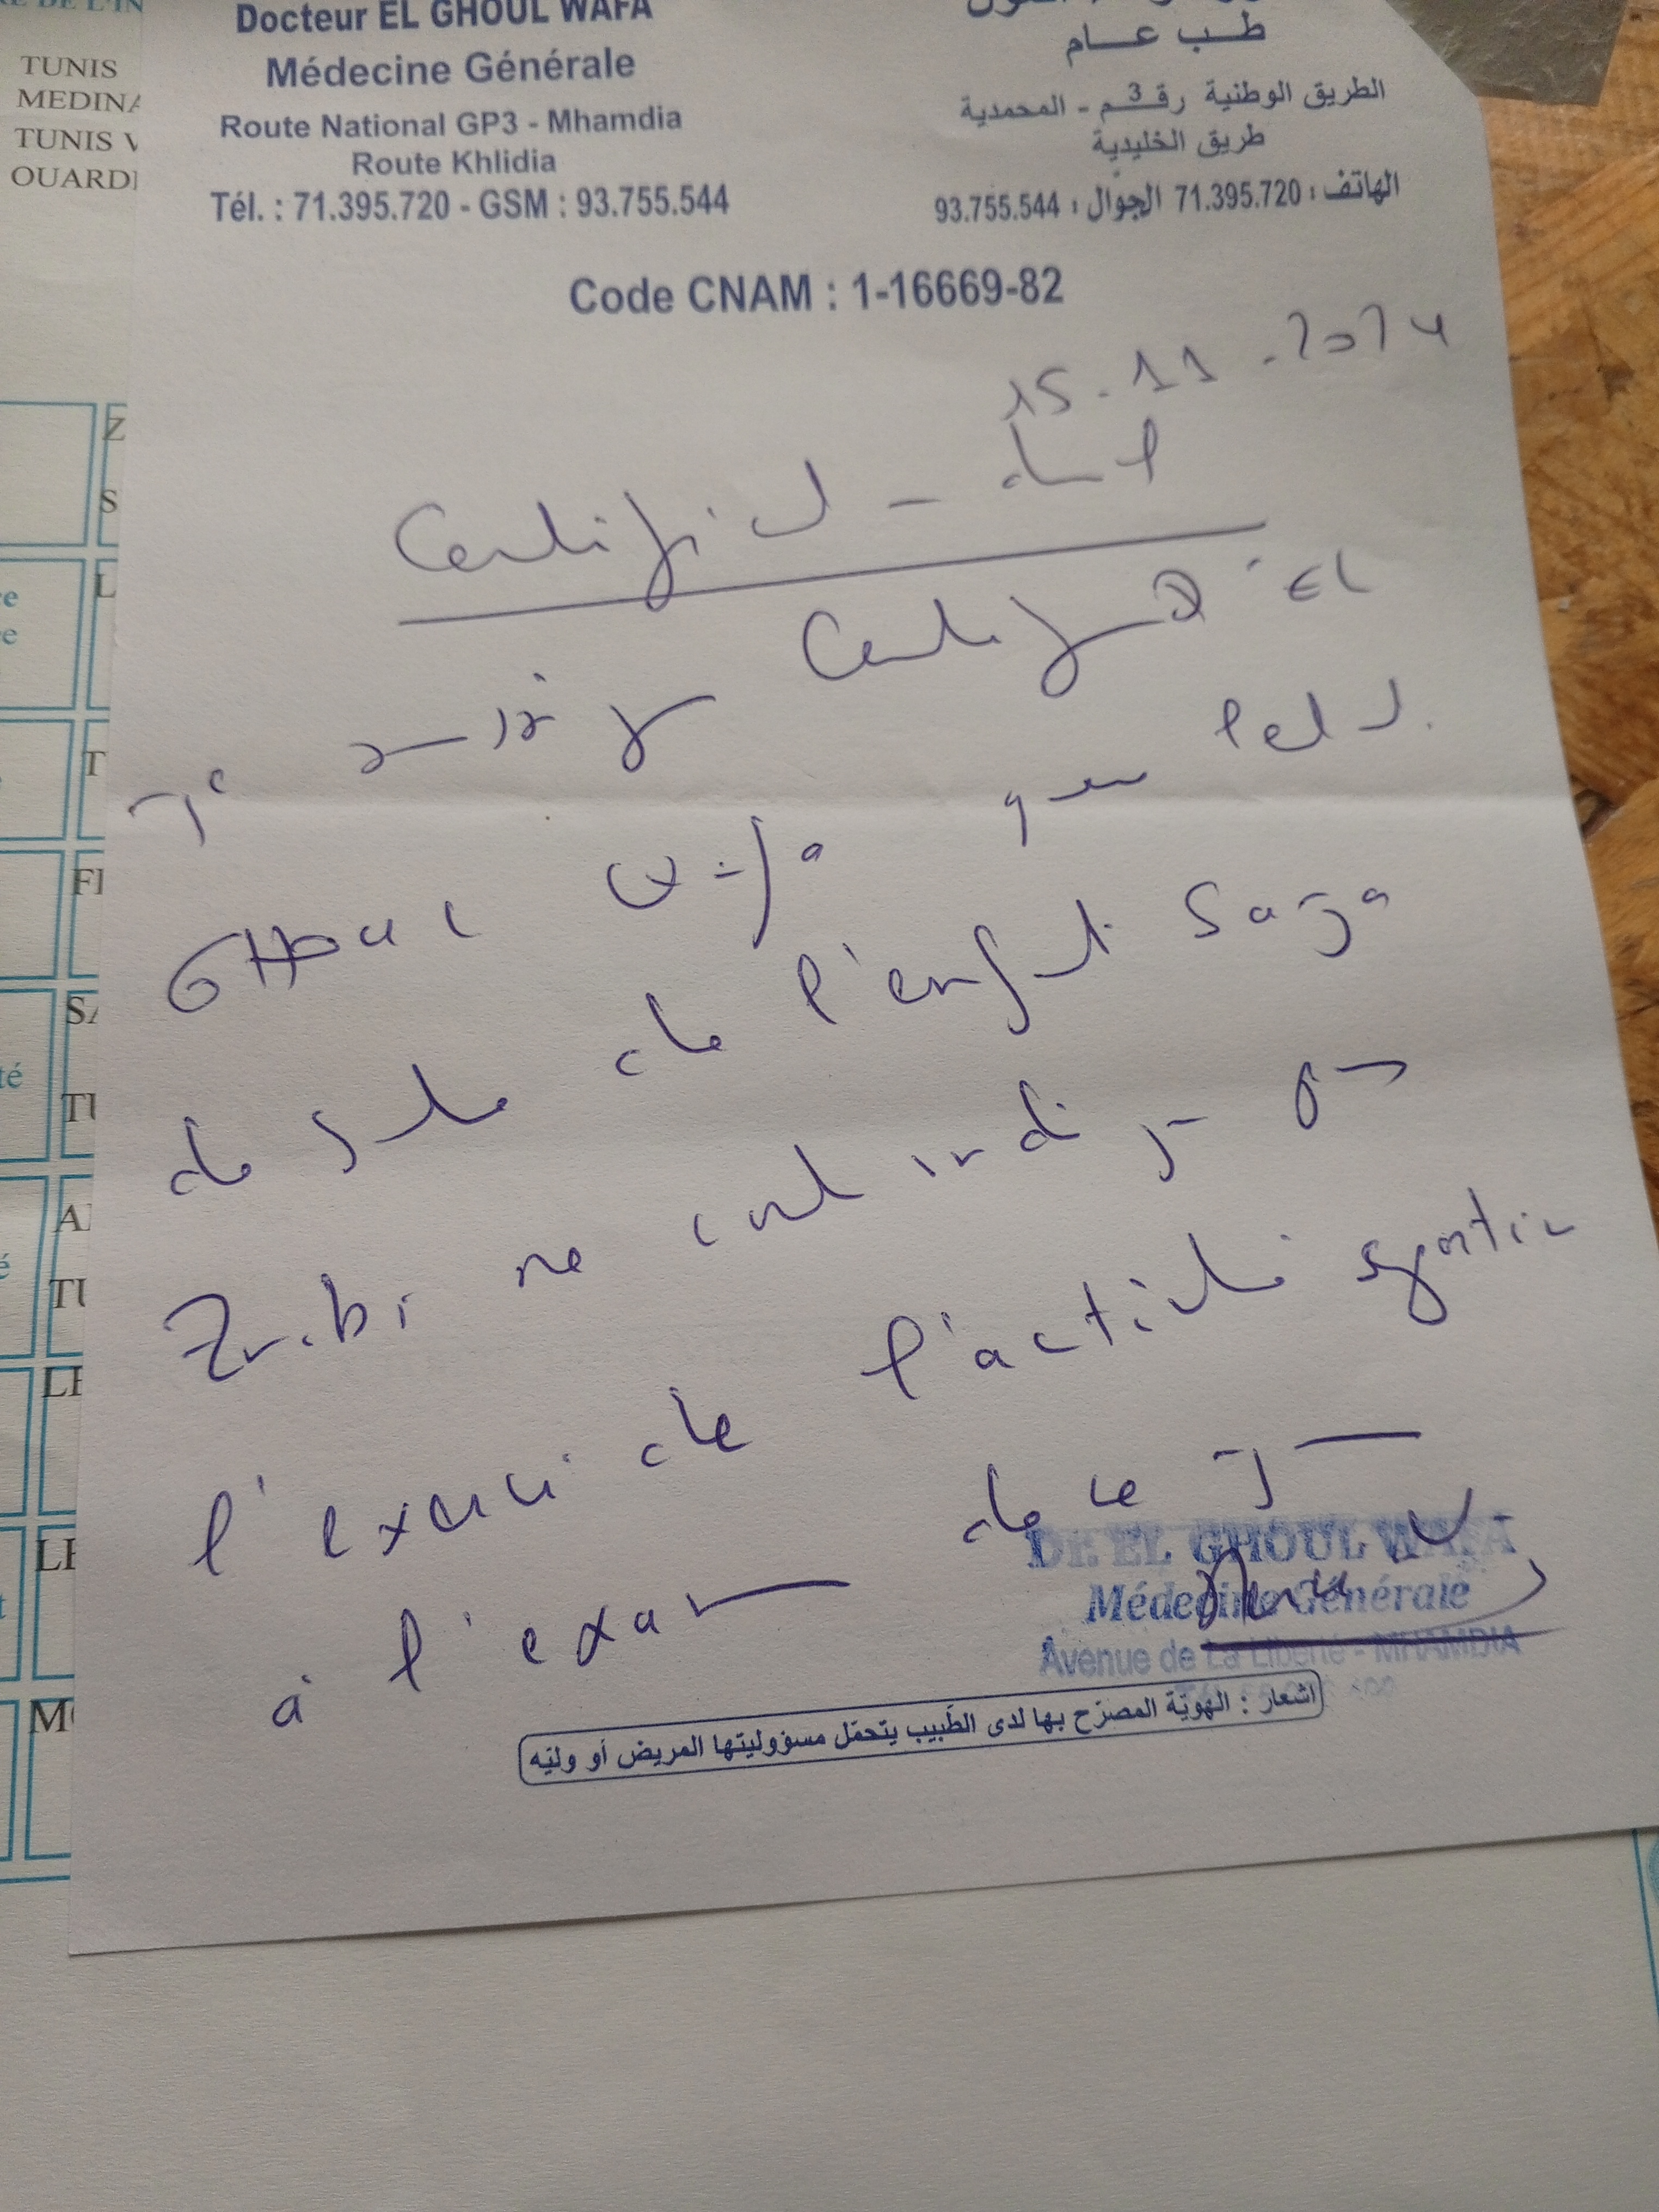 Docteur EL GHOUL WAFA
Médecine Générale
Route National GP3 - Mhamdia
Route Khlidia
Tél. : 71.395.720 - GSM : 93.755.544
طب عام
الطريق الوطنية رقم 3 - المحمدية
طريق الخليدية
الهاتف : 71.395.720 الجوال : 93.755.544
Code CNAM : 1-16669-82
15.11.2024
Certificat
Certifie EL
Ghoul Wafa que l'etat
de l'enfant Saja
Zribi ne contrindique pas
l'exercice de l'activité sportive
à l'examen de ce jour
Dr. EL GHOUL WAFA
Médecine Générale
Avenue de La Liberté - MHAMDIA
اشعار : الهويّة المصرّح بها لدى الطّبيب يتحمّل مسؤوليتها المريض أو وليّه
TUNIS
TUNIS